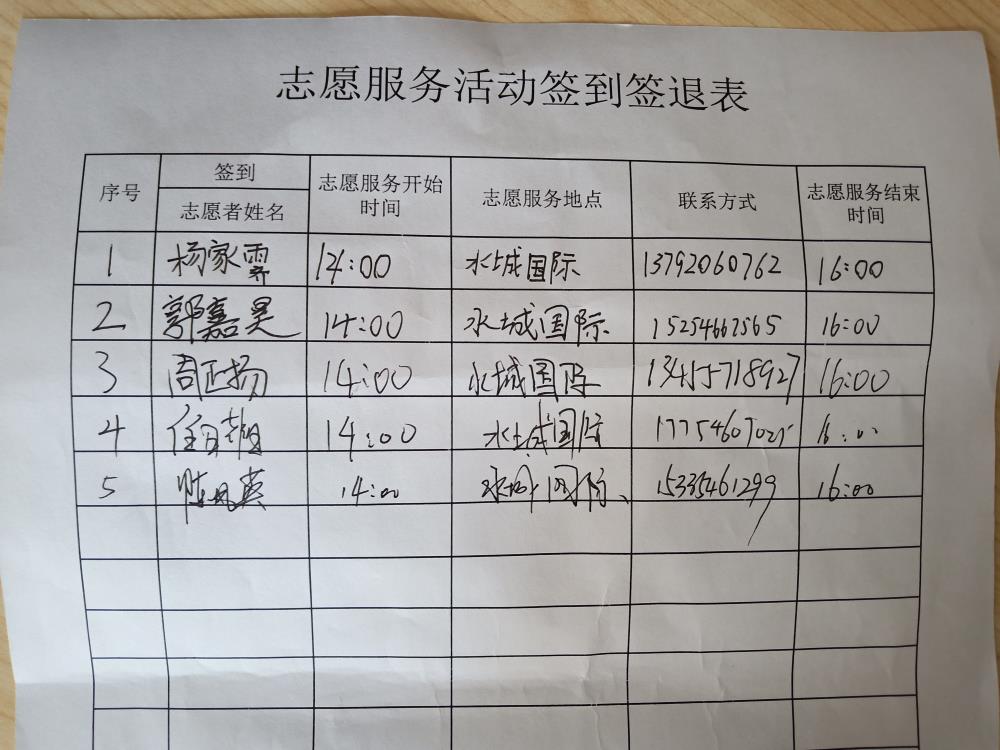 志愿服务活动签到签退表
序号 签到 志愿者姓名 志愿服务开始时间 志愿服务地点 联系方式 志愿服务结束时间
1 杨家霁 14:00 水城国际 13792060762 16:00
2 郭嘉昊 14:00 水城国际 15254667565 16:00
3 周正扬 14:00 水城国际 13455718927 16:00
4 14:00 水城国际 16:00
5 14:00 水城国际、 15335461299 16:00